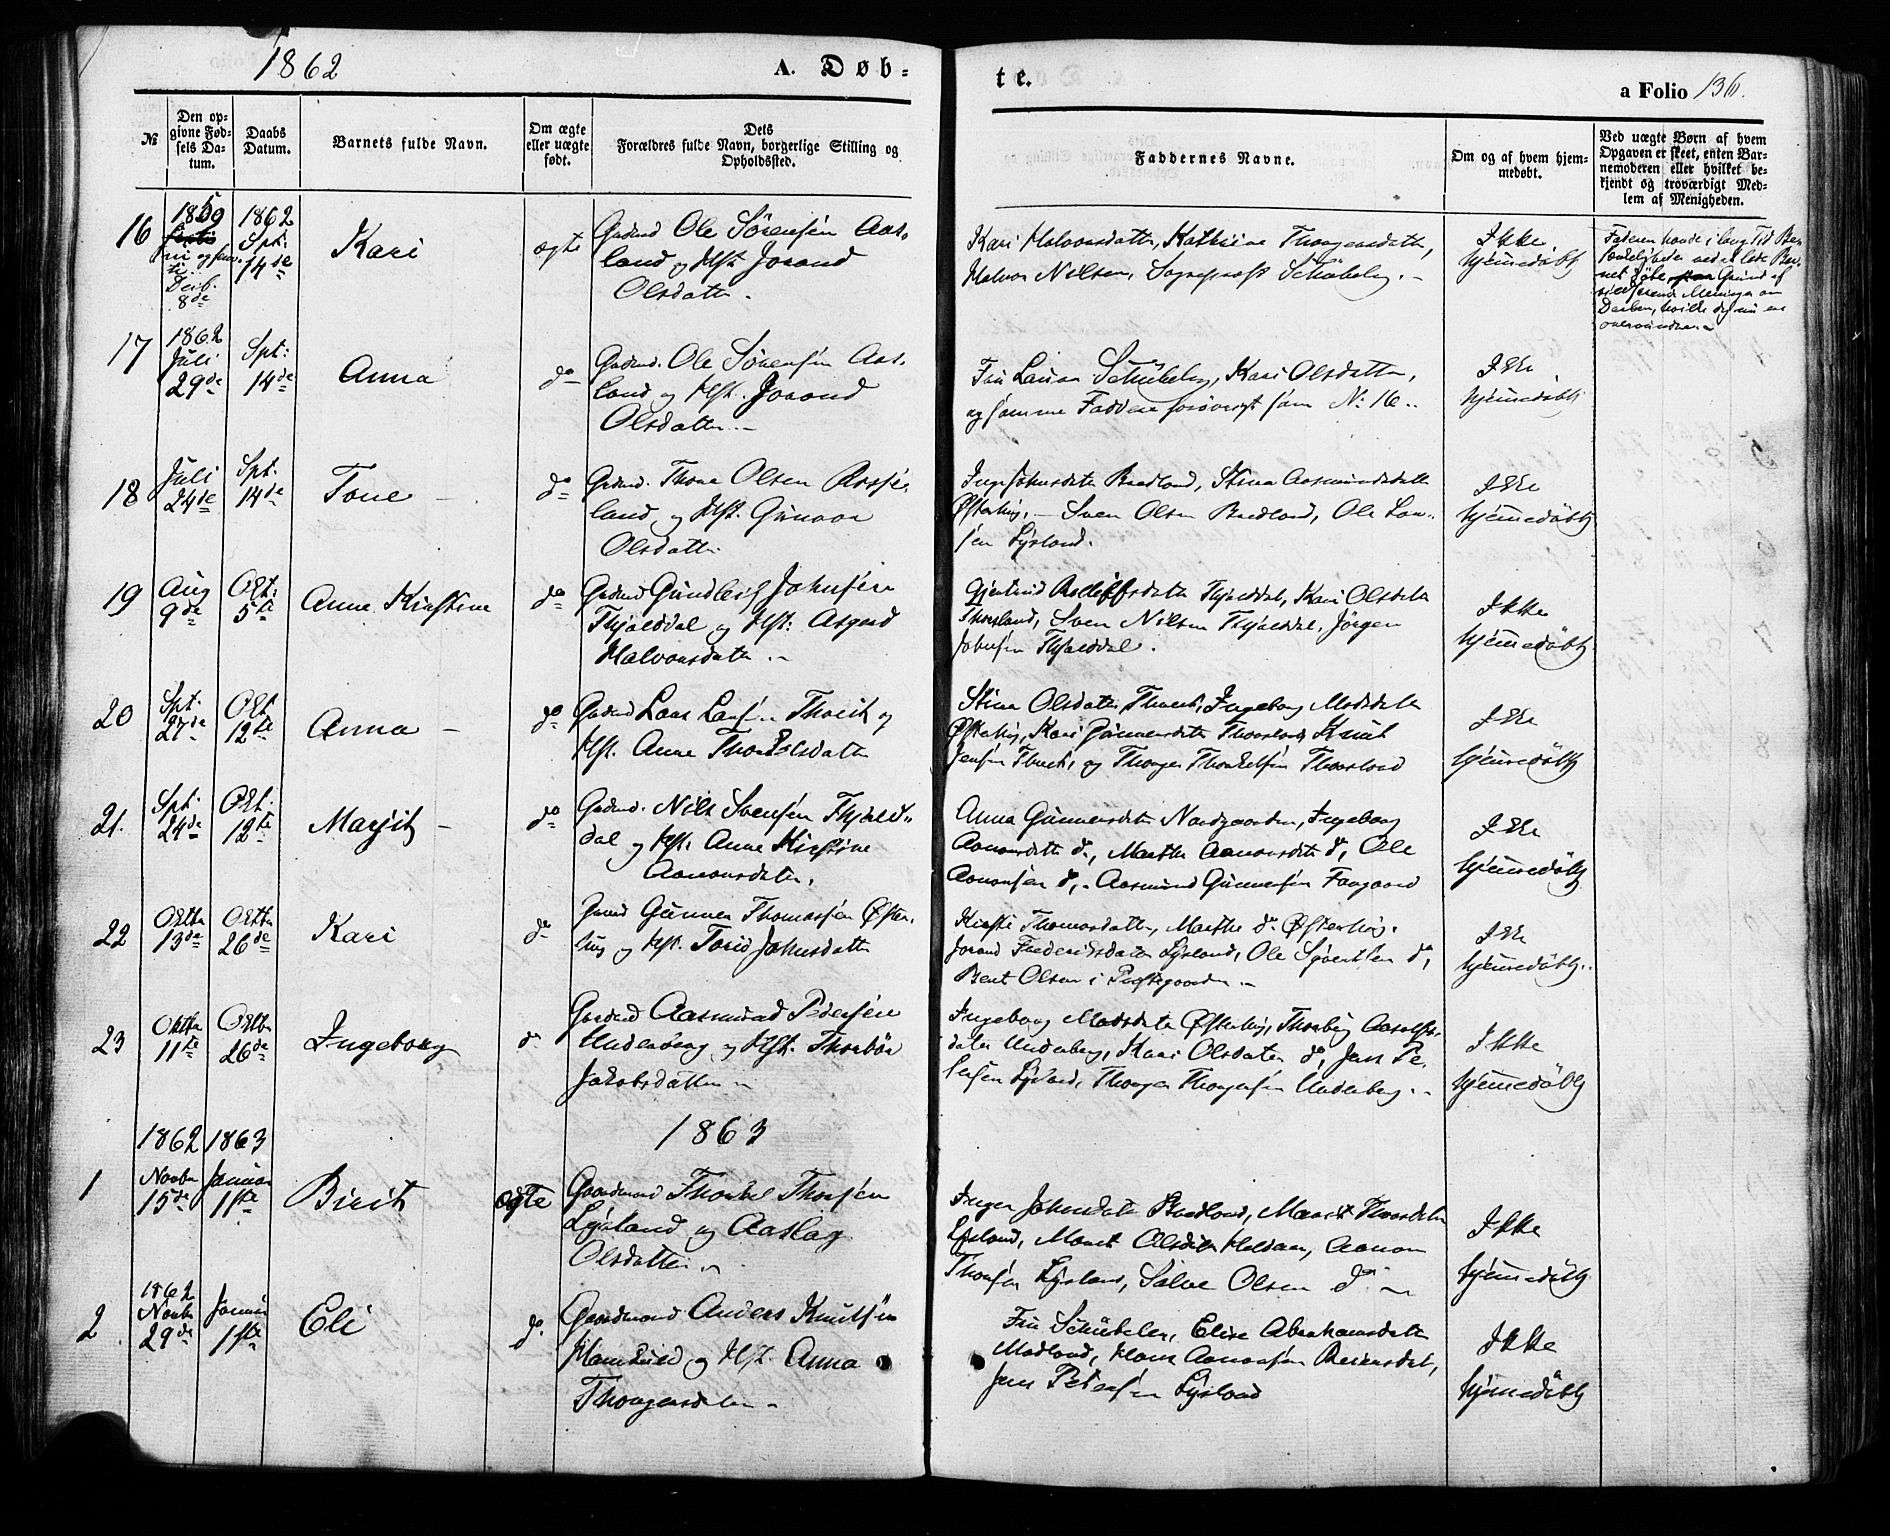 1862
A. Døb-
te.
a Folio 136.
№
Den op-
givne Fød-
sels Da-
tum.
Daabs
Datum.
Barnets fulde Navn.
Om ægte
eller uægte
født.
Dets
Forældres fulde Navn, borgerlige Stilling og
Opholdssted.
Faddernes Navne.
Om og af hvem hjem-
medøbt.
Ved uægte Børn af hvem
Opgaven er skeet, enten Bar-
nemoderen eller hvilket be-
kjendt og troværdigt Med-
lem af Menigheden.
16
1859
8de
1862
Spt.
14de
Kari
ægte
Gaardmd Ole Sørensen Aas-
land og Hst. Jorand
Olsdatter.
Kari Halvorsdatter, Kathrine Thorgersdatter,
Halvor Nilsen, Sogneprest Schübeler. -
Ikke
hjemmedøbt
Faderen havde i lang Tid Be-
tænkeligheder ved at lade Bar-
net døbe, Grund af
Meninger om
Daaben, hvilke dog nu ere
overvundne.
17
1862
Juli
29de
Spt:
14de
Anna
do
Gaardmd. Ole Sørensen Aas-
land og Hst. Jorand
Olsdatter. -
Fru Laura Schübeler, Kari Olsdatter,
og samme Faddere forøvrigt som N: 16..
Ikke
hjemmedøbt
18
Juli
24de
Spt.
14de
Tone -
do
Gaardmd. Thore Olsen Rosse-
land og Hst. Gunvor
Olsdatter.
Inger Johnsdatter Bredland, Stina Aasmundsdatter
Østerhuus, - Sven Olsen Bredland, Ole Lar-
sen Lysland.
Ikke
hjemmedøbt
19
Aug
9de
Okt:
5te
Anne Kirstine
do
Gaardmd Gundleif Johnsen
Fjelddal og Hst: Asgerd
Halvorsdatter. -
Gjertrud Rolleffsdatter Fjelddal, Kari Olsdatter
Thorsland, Sven Nilsen Fjelddal, Jørgen
Johnsen Fjelddal.
Ikke
hjemmedøbt
20
Spt.
27de
Okt.
12te
Anna -
do
Gaardmd Lars Larsen Thveit og
Hst. Anne Thorkelsdatter
Stina Olsdatter Thveit, Ingeborg Madsdatter
Østerhuus, Kari Gunnersdatter Thorsland, Knut
Jensen Thveit, og Thorger Thorkelsen Thorsland
Ikke
hjemmedøbt
21.
Spt.
24de
Okt.
12te
Marjit -
do
Gaardmd. Nils Svensen Fjeld-
dal og Hst. Anne Kirstine
Aanonsdatter.
Anna Gunnersdatter Nordgaarden, Ingeborg
Aanonsdatter do, Marthe Aanonsdatter do, Ole
Aanonsen do, - Aasmund Gunnersen Faagaard
Ikke
hjemmedøbt
22
Oktbr
13de
Oktbr
26de
Kari
do
Gaardmd Gunner Thomassen Øster-
huus og Hst. Torid Johnsdatter
Kirsti Thomasdatter, Marthe do Østerhuus.
Jorand Frederiksdatter Lysland, Ole Syvertsen do,
Bent Olsen i Prestegaarden. -
Ikke
hjemmedøbt.
23
Oktbr
11te
Oktbr
26de
Ingeborg
do
Gaardmd Aasmund Pedersen
Underberg og Hst. Thorbør
Jakobsdatter -
Ingeborg Madsdatter Østerhuus, Thorbjør Aasulfs-
datter Underberg, Kari Olsdatter do, Jens Pe-
tersen Lysland, Thorger Thorgersen Underberg. -
Ikke
hjemmedøbt
1862 1863
1863
1
Novbr
15de
Januar
1ste
Birit
ægte
Gaardmand Thorkel Thorsen
Lysland og Aaslag
Olsdatter. -
Inger Johnsdatter Bredland, Marit Thorsdatter
Lysland, Marit Olsdatter Heldaas, Aanon
Thorsen Lysland, Salve Olsen do -
Ikke
hjemmedøbt
2.
1862
Novbr
29de
Januar
1ste
Eli
do.
Gaardmand Anders Knutsen
og Hst. Anna
Thorgersdatter -
Fru Schübeler, Elise Abrahamsdatter
Modland, Hans Aanonsen Reiersdal,
Jens Petersen Lysland
Ikke
hjemmedøbt